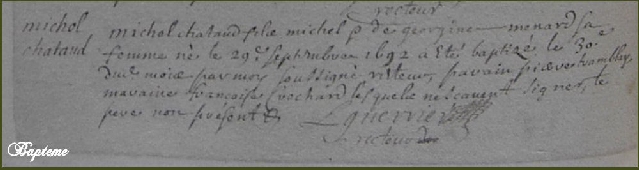 recteur
michel
chataud
michel chataud fils michel p de georgine menard sa
femme né le 29e septembre 1692 a eté baptizé le 30e
dud. mois par moy soussigné recteur, parain pierre tramblay
maraine francoise Crochard lesquels ne scavent signer, le
pere non présent
guerrier
recteur
Bapteme